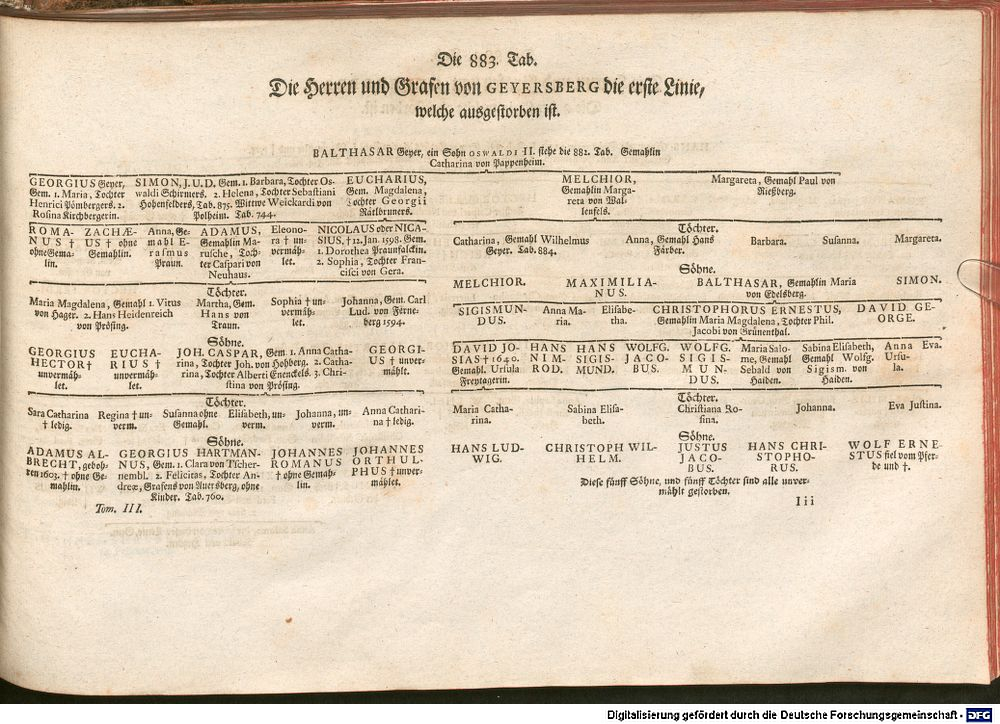 Die 883. Tab.
Die Herren und Grafen von GEYERSBERG die erste Linie,
welche ausgestorben ist.
BALTHASAR Geyer, ein Sohn OSWALDI II. siehe die 882. Tab. Gemahlin
Catharina von Pappenheim.
GEORGIUS Geyer,
Gem. 1. Maria, Tochter
Henrici Pömbergers. 2.
Rosina Kirchbergerin.
SIMON, J. U. D. Gem. 1. Barbara, Tochter Os-
waldi Schirmers. 2. Helena, Tochter Sebastiani
Hohenfelders, Tab. 875. Wittwe Weickardi von
Polheim. Tab. 744.
EUCHARIUS,
Gem. Magdalena,
Tochter Georgii
Rätlbruners.
MELCHIOR,
Gemahlin Marga-
reta von Wal-
lenfels.
Margareta, Gemahl Paul von
Rießberg.
ROMA-
NUS †
ohne Gema-
lin.
ZACHÆ-
US † ohne
Gemahlin.
Anna, Ge-
mahl E-
rasmus
Praun.
ADAMUS,
Gemahlin Ma-
rusche, Toch-
ter Caspari von
Neuhaus.
Eleono-
ra † un-
vermäh-
let.
NICOLAUS oder NICA-
SIUS. † 12. Jan. 1598. Gem.
1. Dorothea Praunfalckin.
2. Sophia, Tochter Fran-
cisci von Gera.
Töchter.
Catharina, Gemahl Wilhelmus
Geyer. Tab. 884.
Anna, Gemahl Hans
Färber.
Barbara.
Susanna.
Margareta.
Söhne.
MELCHIOR.
MAXIMILIA-
NUS.
BALTHASAR, Gemahlin Maria
von Edelsberg.
SIMON.
Töchter.
Maria Magdalena, Gemahl 1. Vitus
von Hager. 2. Hans Heidenreich
von Prösing.
Martha, Gem.
Hans von
Traun.
Sophia † un-
vermäh-
let.
Johanna, Gem. Carl
Lud. von Ferne-
berg 1594.
SIGISMUN-
DUS.
Anna Ma-
ria.
Elisabe-
tha.
CHRISTOPHORUS ERNESTUS,
Gemahlin Maria Magdalena, Tochter Phil.
Jacobi von Grünenthal.
DAVID GE-
ORGE.
Söhne.
GEORGIUS
HECTOR †
unvermäh-
let.
EUCHA-
RIUS †
unvermäh-
let.
JOH. CASPAR, Gem. 1. Anna Catha-
rina, Tochter Joh. von Hohberg. 2. Catha-
rina, Tochter Alberti Enenckels. 3. Chri-
stina von Prösing.
GEORGI-
US † unver-
mählt.
DAVID JO-
SIAS † 1640.
Gemahl. Ursula
Freytagerin.
HANS
NIM-
ROD.
HANS
SIGIS-
MUND.
WOLFG.
JACO-
BUS.
WOLFG.
SIGIS-
MUN-
DUS.
Maria Salo-
me, Gemahl
Sebald von
Haiden.
Sabina Elisabeth,
Gemahl Wolfg.
Sigism. von
Haiden.
Anna
Ursu-
la.
Eva.
Töchter.
Sara Catharina
† ledig.
Regina † un-
verm.
Susanna ohne
Gemahl.
Elisabeth, un-
verm.
Johanna, un-
verm.
Anna Cathari-
na † ledig.
Töchter.
Maria Catha-
rina.
Sabina Elisa-
beth.
Christiana Ro-
sina.
Johanna.
Eva Justina.
Söhne.
ADAMUS AL-
BRECHT, geboh-
ren 1603. † ohne Ge-
mahlin.
GEORGIUS HARTMAN-
NUS, Gem. 1. Clara von Tscher-
nembl. 2. Felicitas, Tochter An-
dreæ, Grafens von Auersberg, ohne
Kinder. Tab. 760.
JOHANNES
ROMANUS
† ohne Gemah-
lin.
JOHANNES
ORTHUL-
PHUS † unver-
mählet.
Söhne.
HANS LUD-
WIG.
CHRISTOPH WIL-
HELM.
JUSTUS
JACO-
BUS.
HANS CHRI-
STOPHO-
RUS.
WOLF ERNE-
STUS fiel vom Pfer-
de und †.
Diese fünff Söhne, und fünff Töchter sind alle unver-
mählt gestorben.
Tom. III.
Iii
Digitalisierung gefördert durch die Deutsche Forschungsgemeinschaft - DFG